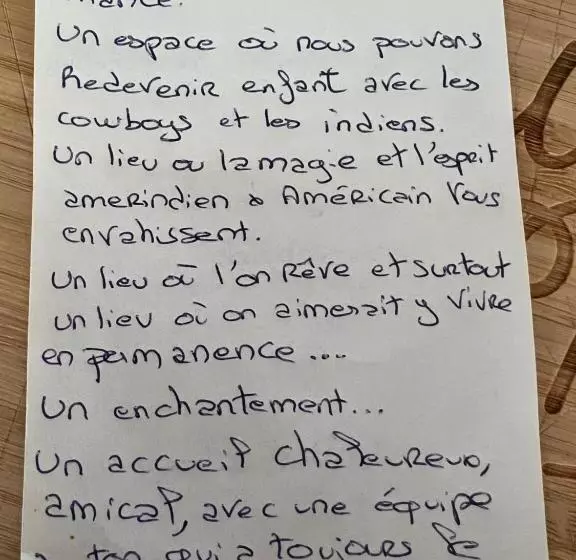 Un espace où nous pouvons
Redevenir enfant avec les
cowboys et les indiens.
Un lieu ou la magie et l'esprit
amerindien & Américain Vous
envahissent.
Un lieu où l'on Rêve et surtout
un lieu où on aimerait y Vivre
en permanence....
Un enchantement...
Un accueil chaleureux,
amical, avec une équipe
qui a toujours le